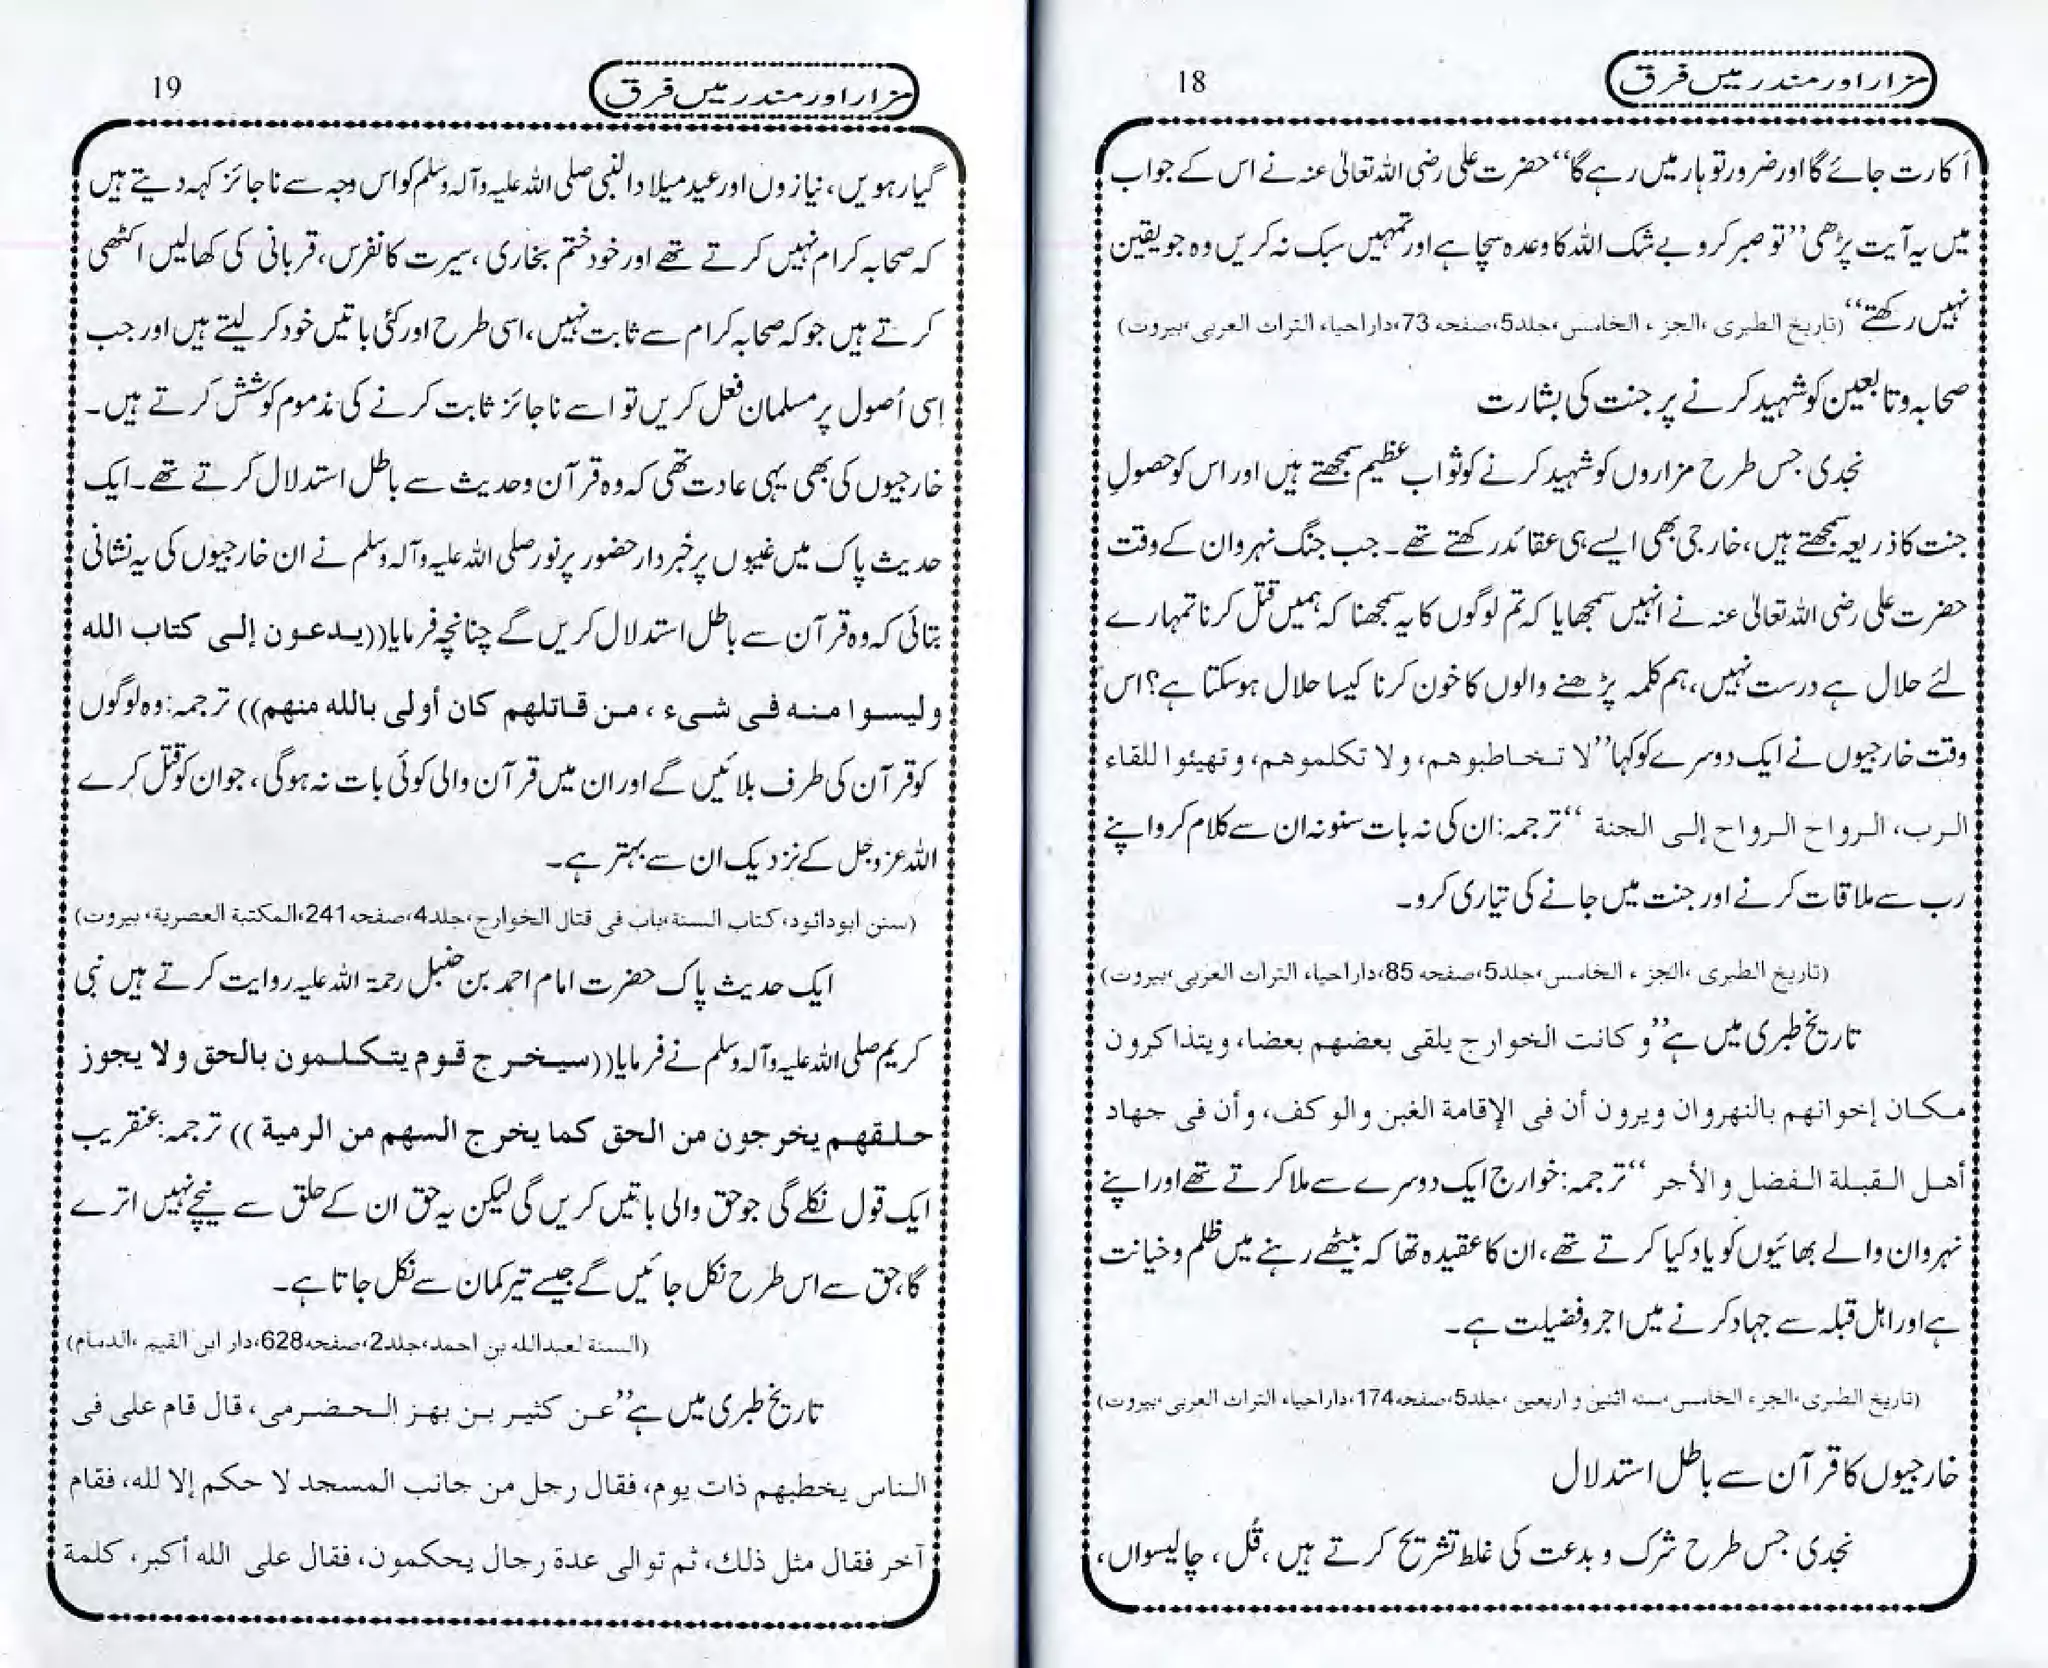 مزار اور مندر میں فرق
18
اَکارت جائے گا اور ضرور تو ہار میں رہے گا‘‘ حضرت علی رضی اللہ تعالیٰ عنہ نے اس کے جواب
میں یہ آیت پڑھی ’’تو صبر کرو بے شک اللہ کا وعدہ سچا ہے اور تمہیں سبک نہ کریں وہ جو یقین
نہیں رکھتے‘‘ (تاریخ الطبری ،الجزء الخامس،جلد5،صفحہ73،دار احیاء التراث العربی،بیروت)
صحابہ و تابعین کو شہید کرنے پر جنت کی بشارت
نجدی جس طرح مزاروں کو شہید کرنے کو ثوابِ عظیم سمجھتے ہیں اور اس کو حصولِ
جنت کا ذریعہ سمجھتے ہیں، خارجی بھی ایسے ہی عقائد رکھتے تھے۔ جب جنگ نہروان کے وقت
حضرت علی رضی اللہ تعالیٰ عنہ نے انہیں سمجھایا کہ تم لوگوں کا یہ سمجھنا کہ ہمیں قتل کرنا تمہارے
لئے حلال ہے درست نہیں، ہم کلمہ پڑھنے والوں کا خون کرنا کیسا حلال ہوسکتا ہے؟ اس
وقت خارجیوں نے ایک دوسرے کو کہا ’’لا تخاطبوهم، ولا تكلموهم، وتهيئوا للقاء
الرب، الرواح الرواح إلى الجنة ‘‘ ترجمہ: ان کی نہ بات سنو نہ ان سے کلام کرو اپنے
رب سے ملاقات کرنے اور جنت میں جانے کی تیاری کرو۔
(تاریخ الطبری ،الجزء الخامس،جلد5،صفحہ85،دار احیاء التراث العربی،بیروت)
تاریخ طبری میں ہے ’’وكانت الخوارج يلقى بعضهم بعضا، ويتذاكرون
مكان إخوانهم بالنهروان ويرون أن فى الإقامة الغبن والوكف، وأن فى جهاد
أهل القبلة الفضل والأجر ‘‘ ترجمہ: خوارج ایک دوسرے سے ملا کرتے تھے اور اپنے
نہروان والے بھائیوں کو یاد کیا کرتے تھے، ان کا عقیدہ تھا کہ بیٹھے رہنے میں ظلم و خیانت
ہے اور اہل قبلہ سے جہاد کرنے میں اجر و فضیلت ہے۔
(تاریخ الطبری،الجزء الخامس،سنہ اثنین و اربعین ،جلد5،صفحہ174،دار احیاء التراث العربی،بیروت)
خارجیوں کا قرآن سے باطل استدلال
نجدی جس طرح شرک و بدعت کی غلط تشریح کرتے ہیں، قُل، چالیسواں،
مزار اور مندر میں فرق
19
گیارہویں، نیازوں اور عید میلاد النبی صلی اللہ علیہ وآلہ وسلم کو اس وجہ سے ناجائز کہہ دیتے ہیں
کہ صحابہ کرام نہیں کرتے تھے اور خود ختم بخاری، سیرت کانفرس، قربانی کی کھالیں اکٹھی
کرتے ہیں جو کہ صحابہ کرام سے ثابت نہیں، اسی طرح اور کئی باتیں خود کر لیتے ہیں اور جب
اِسی اُصول پر مسلمان فعل کریں تو اسے ناجائز ثابت کرنے کی مذموم کوشش کرتے ہیں۔
خارجیوں کی بھی یہی عادت تھی کہ وہ قرآن وحدیث سے باطل استدلال کرتے تھے۔ ایک
حدیث پاک میں غیبوں پر خبردار حضور پرنور صلی اللہ علیہ وآلہ وسلم نے ان خارجیوں کی یہ نشانی
بتائی کہ وہ قرآن سے باطل استدلال کریں گے چنانچہ فرمایا ((يدعون إلى كتاب الله
وليسوا منه فى شىء ، من قاتلهم كان أولى بالله منهم)) ترجمہ: وہ لوگوں
کو قرآن کی طرف بلائیں گے اور ان میں قرآن والی کوئی بات نہ ہوگی، جو ان کو قتل کرے
اللہ عزوجل کے نزدیک ان سے بہتر ہے۔
(سنن ابوداؤد، کتاب السنة،باب فی قتال الخوارج،جلد4،صفحہ241،المکتبة العصرية، بیروت)
ایک حدیث پاک حضرت امام احمد بن حنبل رحمۃ اللہ علیہ روایت کرتے ہیں نبی
کریم صلی اللہ علیہ وآلہ وسلم نے فرمایا ((سيخرج قوم يتكلمون بالحق ولا يجوز
حلقهم يخرجون من الحق كما يخرج السهم من الرمية )) ترجمہ: عنقریب
ایک قول نکلے گی جو حق والی باتیں کریں گی لیکن یہ حق ان کے حلق سے نیچے نہیں اترے
گا، حق سے اس طرح نکل جائیں گے جیسے تیر کمان سے نکل جاتا ہے۔
(السنة لعبدالله بن احمد،جلد2،صفحہ628،دار ابن القیم ،الدمام)
تاریخ طبری میں ہے ’’عن كثير بن بهز الحضرمى، قال قام على فى
الناس يخطبهم ذات يوم، فقال رجل من جانب المسجد لا حكم إلا لله، فقام
آخر فقال مثل ذلك، ثم توالى عدة رجال يحكمون، فقال على الله أكبر، كلمة